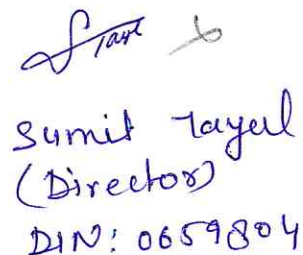 Sumit Tayal
(Director)
DIN: 0659804